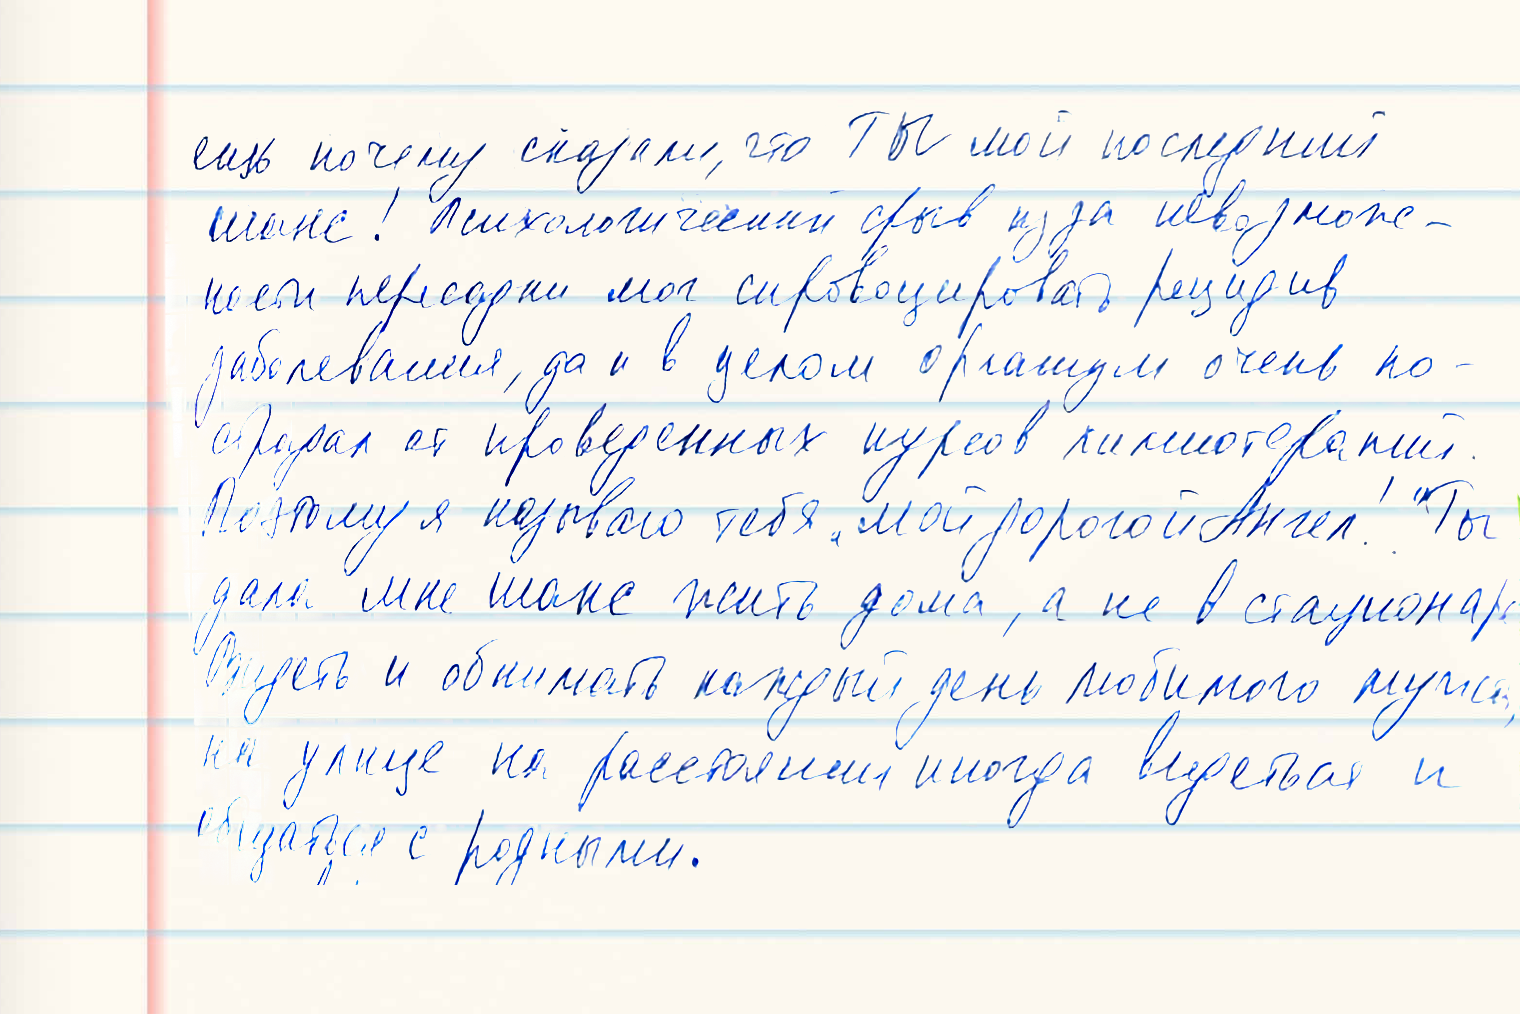 почему сказали, что ТЫ мой последний
шанс! Психологический срыв из за невозмож-
ности пересадки мог спровоцировать рецидив
заболевания, да и в целом организм очень по-
страдал от проведенных курсов химиотерапий.
Поэтому я называю тебя „мой дорогой Ангел!" Ты
дала мне шанс жить дома, а не в стационаре
Видеть и обнимать каждый день любимого мужа,
на улице на расстоянии иногда видеться и
общаться с родными.